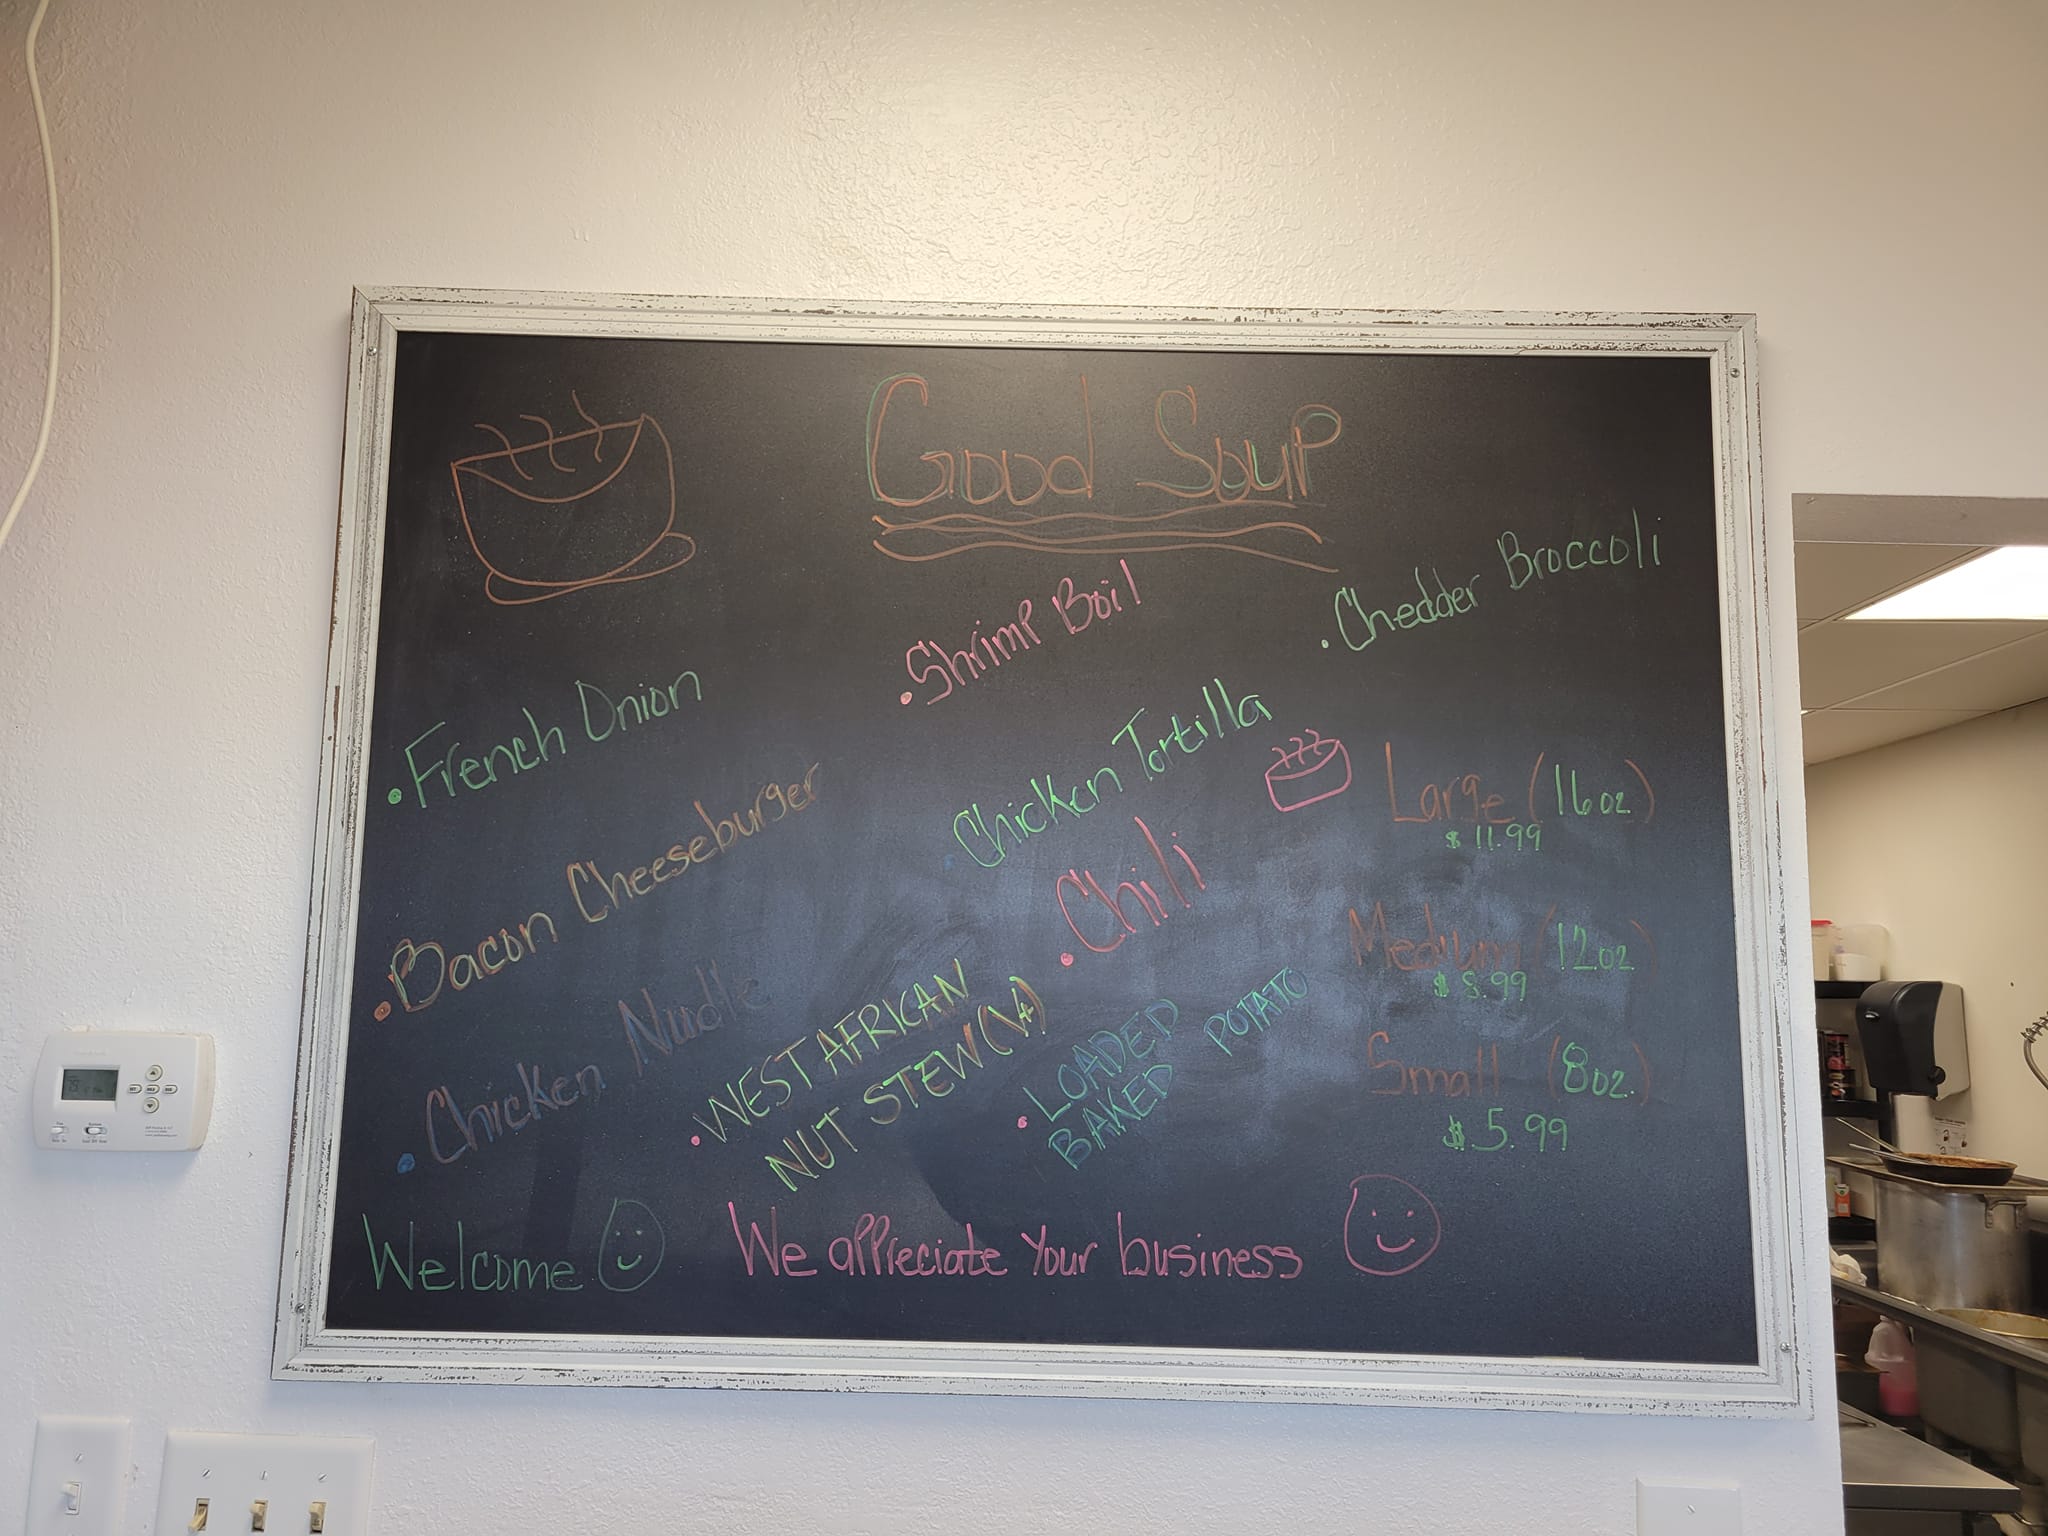 Good Soup
• Shrimp Boil
• Chedder Broccoli
• French Onion
• Chicken Tortilla
• Bacon Cheeseburger
• Chili
• Chicken Nudle
• WEST AFRICAN
NUT STEW (V+)
• LOADED
BAKED POTATO
Large (16oz)
$11.99
Medium (12oz)
$8.99
Small (8oz.)
$5.99
Welcome
We appreciate Your business